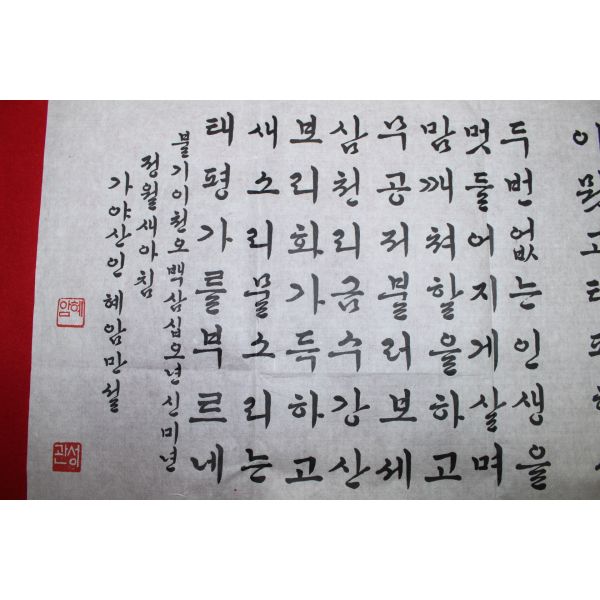 이뭣고
두번없는인생을
멋둘어지게살며
맘깨쳐할을하고
무공저불러보세
삼천리금수강산
보리화가득하고
새소리물소리는
태평가를부르네
불기이천오백삼십오년신미년
정월새아침
가야산인혜암만설
혜암
성관